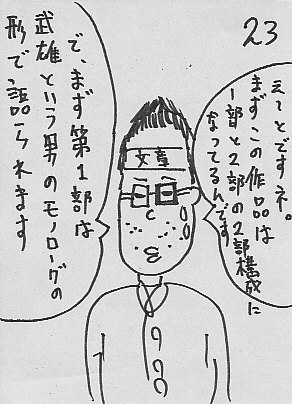 23
えーとですネ。
まずこの作品は
1部と2部の2部構成に
なってるんです
文章
で、まず第1部は
武雄という男のモノローグの
形で語られます